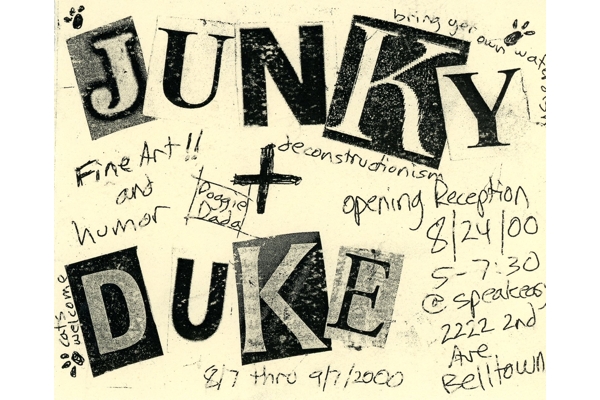 bring yer own water
JUNKY
Fine Art!!
and
humor
Doggie
Dada
+
deconstructionism
opening Reception
8/24/00
5-7:30
@ speakeasy
2222 2nd
Ave
Belltown
DUKE
cats
welcome
8/7 thru 9/7/2000